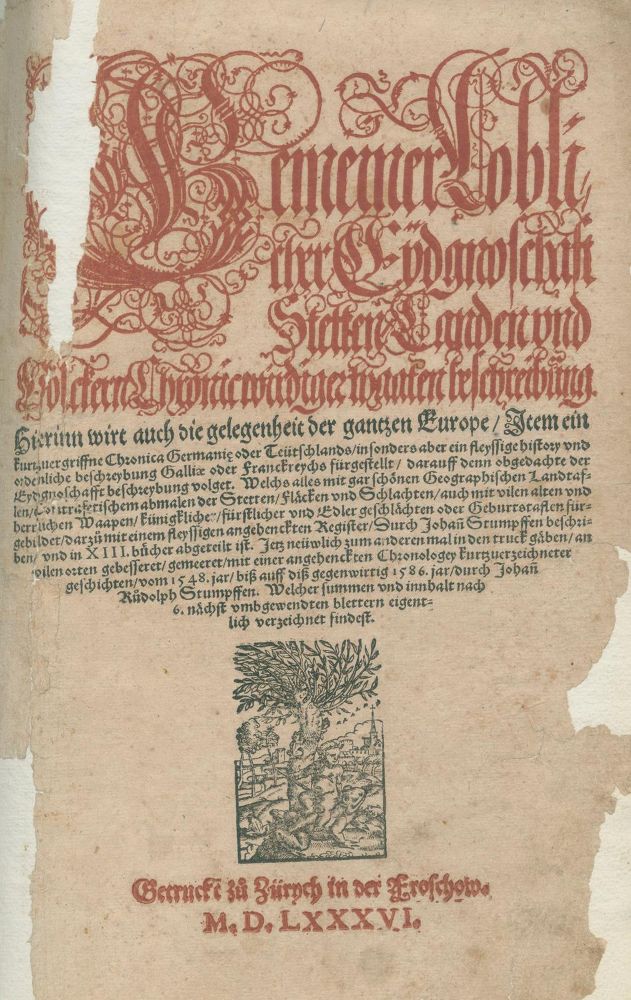 Gemeiner Lobli⸗
cher Eydgnoschafft
Stetten Landen vnd
Völckern Chronicwirdiger thaaten beschreibung.
Hierinn wirt auch die gelegenheit der gantzen Europe/ Item ein
kurtzuergriffne Chronica Germanię oder Teütschlands/ in sonders aber ein fleyssige history vnd
ordenliche beschreybung Galliæ oder Franckreychs fürgestellt/ darauff denn obgedachte der
Eydgnoschafft beschreybung volget. Welchs alles mit gar schönen Geographischen Landtaf-
len/ Contrafetischem abmalen der Stetten/ Fläcken vnd Schlachten/ auch mit vilen alten vnd
herrlichen Waapen/ künigklicher/ fürstlicher vnd Edler geschlächten oder Geburtstaflen für-
gebildet/ darzů mit einem fleyssigen angehenckten Register/ Durch Johañ Stumpffen beschri-
ben/ vnd in XIII. bücher abgeteilt ist. Jetz neüwlich zum anderen mal in den truck gäben/ an
vilen orten gebesseret/ gemeeret/ mit einer angehenckten Chronologey kurtzuerzeichneter
geschichten/ vom 1548. jar/ biß auff diß gegenwirtig 1586. jar/ durch Johañ
Růdolph Stumpffen. Welcher summen vnd innhalt nach
6. nächst vmbgewendten blettern eigent-
lich verzeichnet findest.
Getruckt zů Zürych in der Froschow.
M. D. LXXXVI.